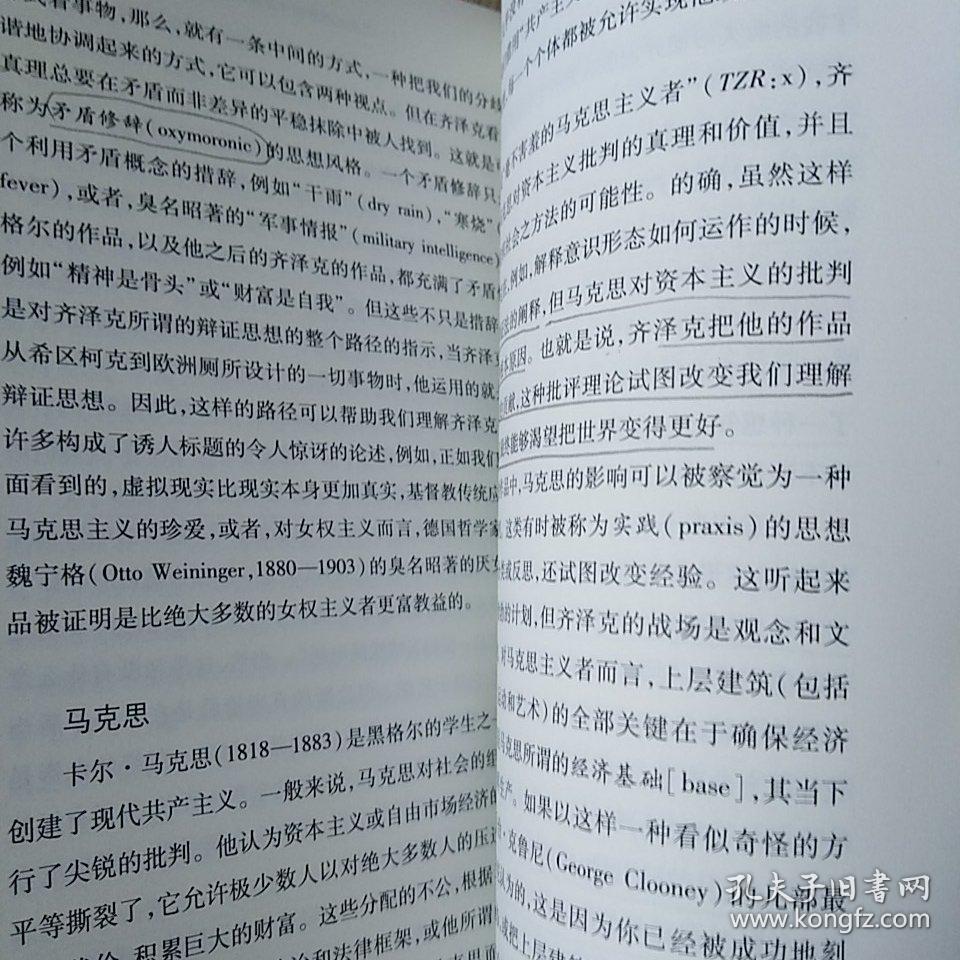 事物，那么，就有一条中间的方式，一种把我们的分歧
谐地协调起来的方式，它可以包含两种视点。但在齐泽克看
真理总要在矛盾而非差异的平稳抹除中被人找到。这就是
称为矛盾修辞(oxymoronic)的思想风格。一个矛盾修辞只
个利用矛盾概念的措辞，例如“干雨”(dry rain)，“寒烧”(
fever)，或者，臭名昭著的“军事情报”(military intelligence)
格尔的作品，以及他之后的齐泽克的作品，都充满了矛盾
例如“精神是骨头”或“财富是自我”。但这些不只是措辞
是对齐泽克所谓的辩证思想的整个路径的指示，当齐泽克
从希区柯克到欧洲厕所设计的一切事物时，他运用的就
辩证思想。因此，这样的路径可以帮助我们理解齐泽克
许多构成了诱人标题的令人惊讶的论述，例如，正如我们
面看到的，虚拟现实比现实本身更加真实，基督教传统应
马克思主义的珍爱，或者，对女权主义而言，德国哲学家
魏宁格(Otto Weininger,1880—1903)的臭名昭著的厌女
品被证明是比绝大多数的女权主义者更富教益的。
马克思
卡尔·马克思(1818—1883)是黑格尔的学生之一
创建了现代共产主义。一般来说，马克思对社会的组
行了尖锐的批判。他认为资本主义或自由市场经济的
平等撕裂了，它允许极少数人以对绝大多数人的压迫
积累巨大的财富。这些分配的不公，根据
治和法律框架，或他所谓
“共产主义
每一个个体都被允许实现他
不害羞的马克思主义者”(TZR:x)，齐
思对资本主义批判的真理和价值，并且
社会之方法的可能性。的确，虽然这样
例如，解释意识形态如何运作的时候，
法的阐释，但马克思对资本主义的批判
本原因。也就是说，齐泽克把他的作品
贡献，这种批评理论试图改变我们理解
终能够渴望把世界变得更好。
品中，马克思的影响可以被察觉为一种
这类有时被称为实践(praxis)的思想
反思，还试图改变经验。这听起来
的计划，但齐泽克的战场是观念和文
对马克思主义者而言，上层建筑(包括
动和艺术)的全部关键在于确保经济
马克思所谓的经济基础[base]，其当下
生产。如果以这样一种看似奇怪的方
·克鲁尼(George Clooney)的此部最
以为的，这是因为你已经被成功地刻
或把上层建筑
孔夫子旧书网
www.kongfz.com